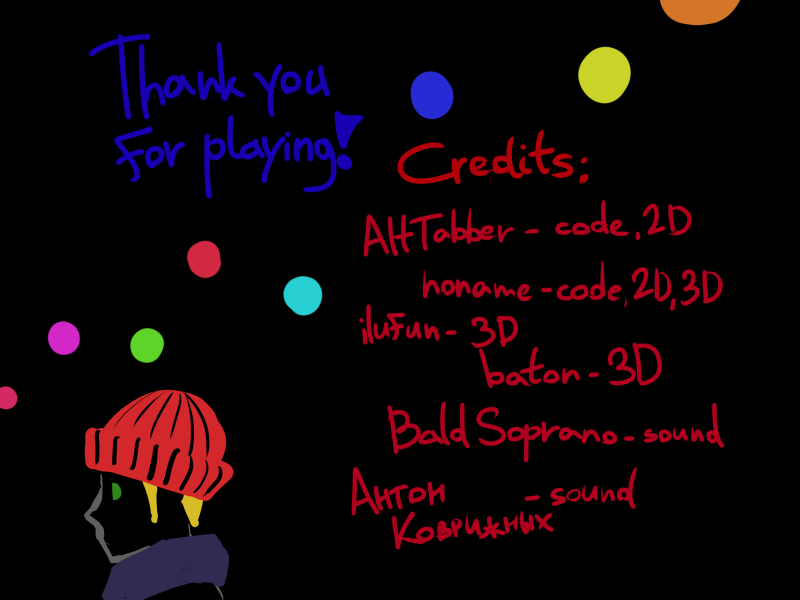 Thank you
For playing!
Credits:
AltTabber - code, 2D
noname - code, 2D, 3D
ilufun - 3D
baton - 3D
Bald Soprano - sound
Антон - sound
Коврижных